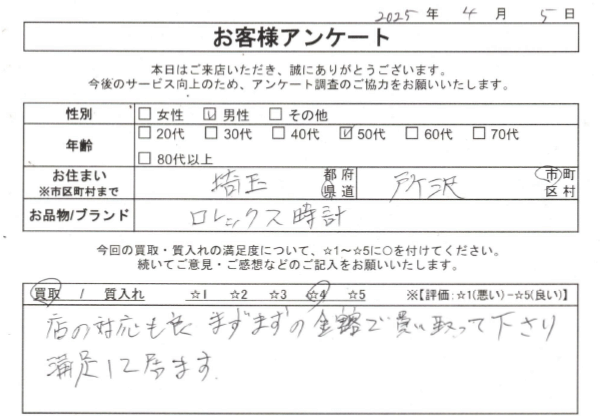 2025 年 4 月 5 日
お客様アンケート
本日はご来店いただき、誠にありがとうございます。
今後のサービス向上のため、アンケート調査のご協力をお願いいたします。
性別 □ 女性 ☑ 男性 □ その他
年齢 □ 20代 □ 30代 □ 40代 ☑ 50代 □ 60代 □ 70代
□ 80代以上
お住まい ※市区町村まで 埼玉 都 府 県 道 所沢 市 町 区 村
お品物/ブランド ロレックス時計
今回の買取・質入れの満足度について、☆1～☆5に○を付けてください。
続いてご意見・ご感想などのご記入をお願いいたします。
買取 / 質入れ ☆1 ☆2 ☆3 ☆4 ☆5 ※【評価:☆1(悪い)−☆5(良い)】
店の対応も良 まずまずの金額で買い取って下さり
満足して居ます